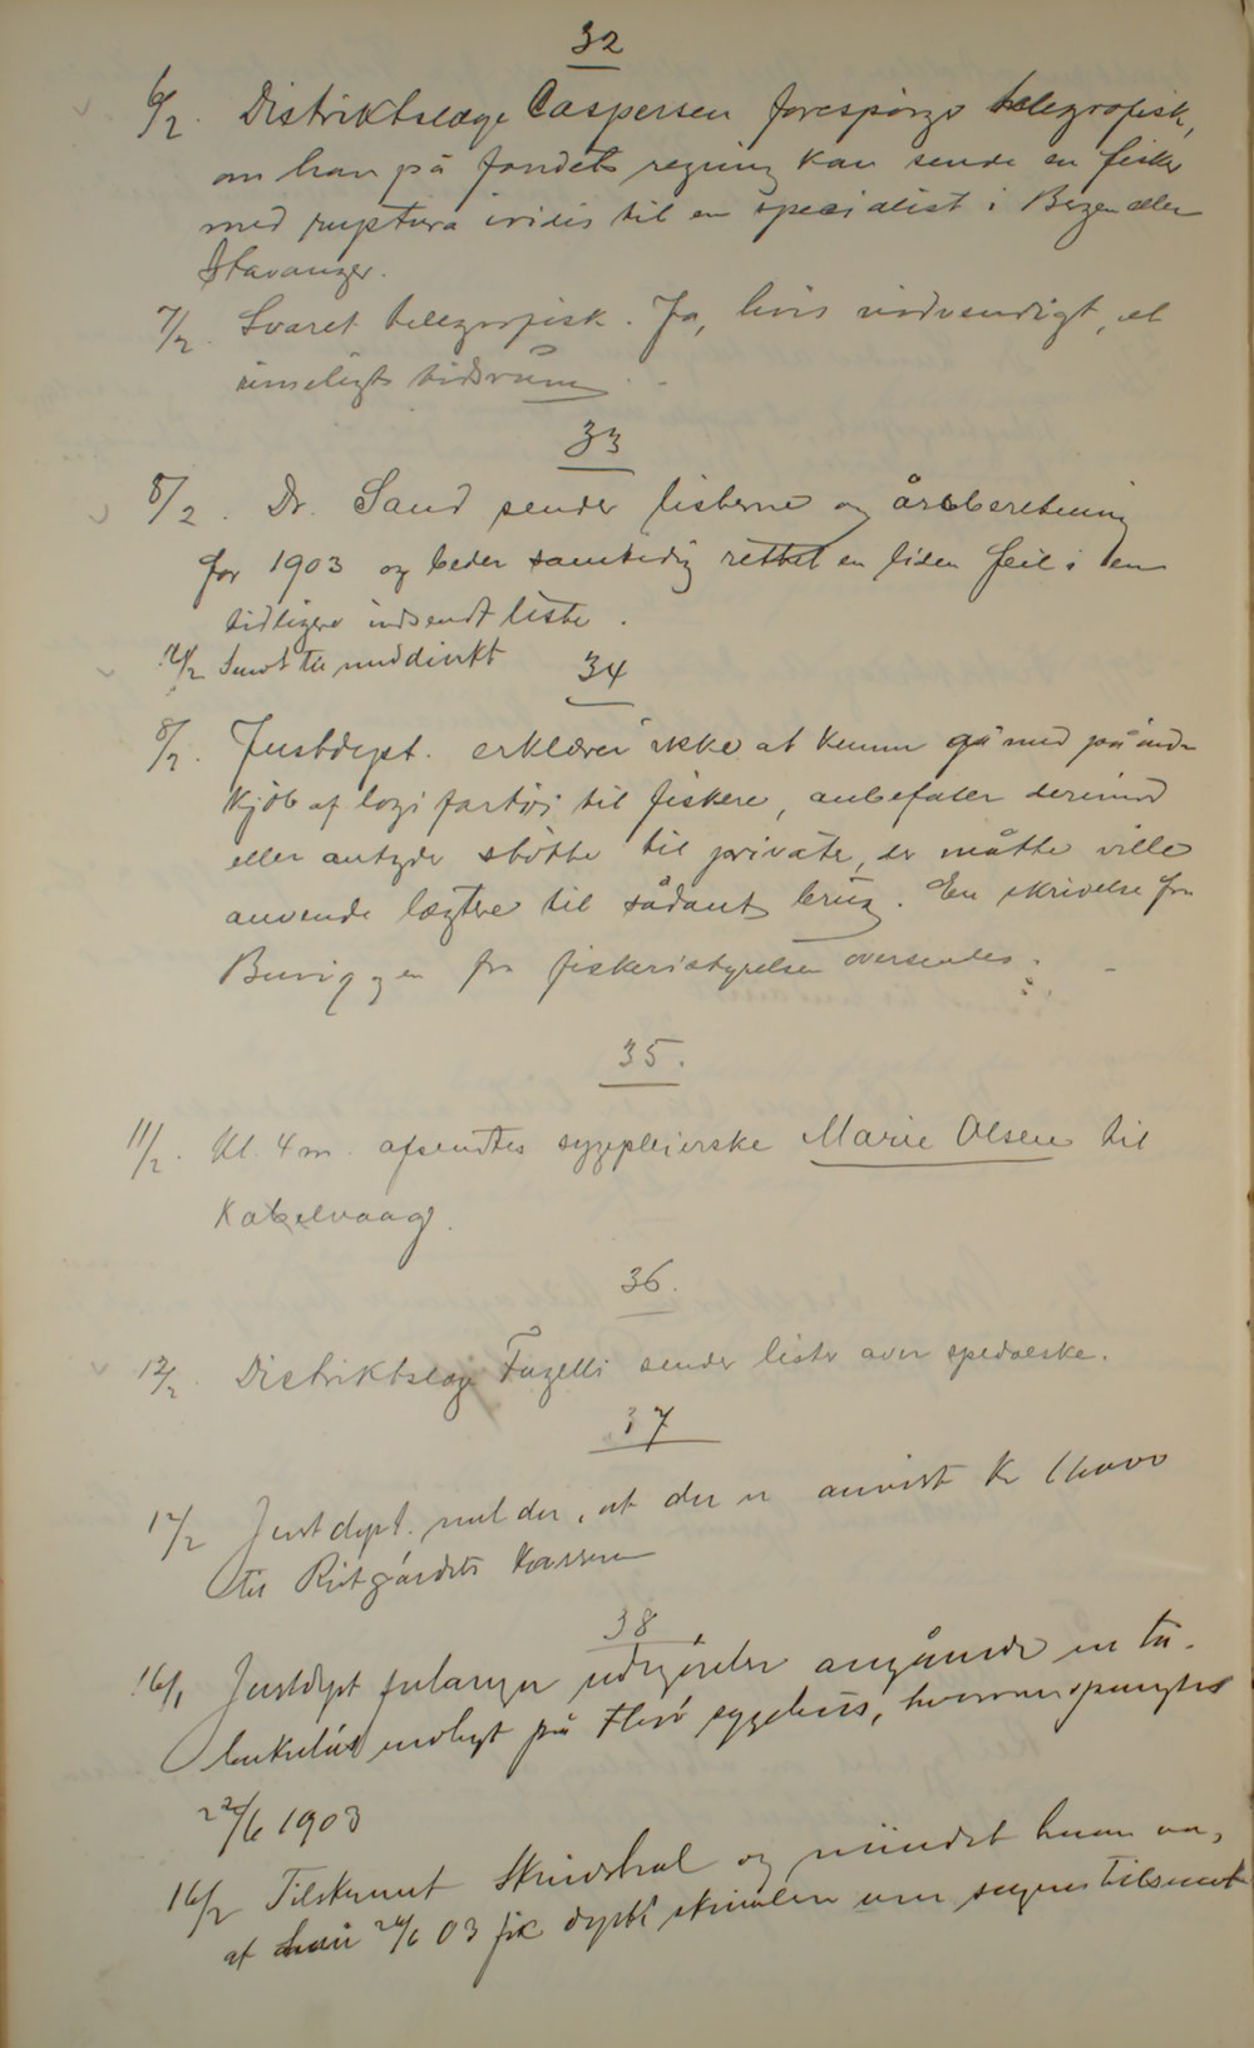 32
6/2. Distriktslæge Caspersen forespørgs telegrafisk,
om han på fondets regning kan sende en fisker
med ruptura iridis til en specialist i Bergen eller
Stavanger.
7/2. Svaret telegrafisk. Ja, hvis nødvendigt, et
rimeligt tidsrum.
33
8/2. Dr. Sand sender listerne og årsberetning
for 1903 og beder samtidig rettet en liden feil i en
tidligere indsendt liste.
12/2 Sendt til meddirekt
34
8/2. Justdept. erklærer ikke at kunne gå med på ind-
kjøb af logifartøi til fiskere, anbefaler derimod
eller antyder støtte til private, der måtte ville
anvende lægtere til sådant brug. En skrivelse fra
Buvig og en fra fiskeristyrelsen oversendes.
35.
11/2. Kl. 4 m. afsendtes sygepleierske Marie Olsen til
Kabelvaag.
36.
12/2. Distriktslæge Fuzelli sender liste over spedalske.
37
12/2 Justdept. melder, at der er anvist Kr
til Reitgjærdets Kasserer
38
16/1 Justdept forlanger udtg angående en tu-
berkuløs indlagt på Florø sygehus, hvorom spurgtes
22/6 1903
16/2 Tilskrevet og mindet ham om,
at han 24/6 03 fik dept's skrivelse om sagen tilsendt